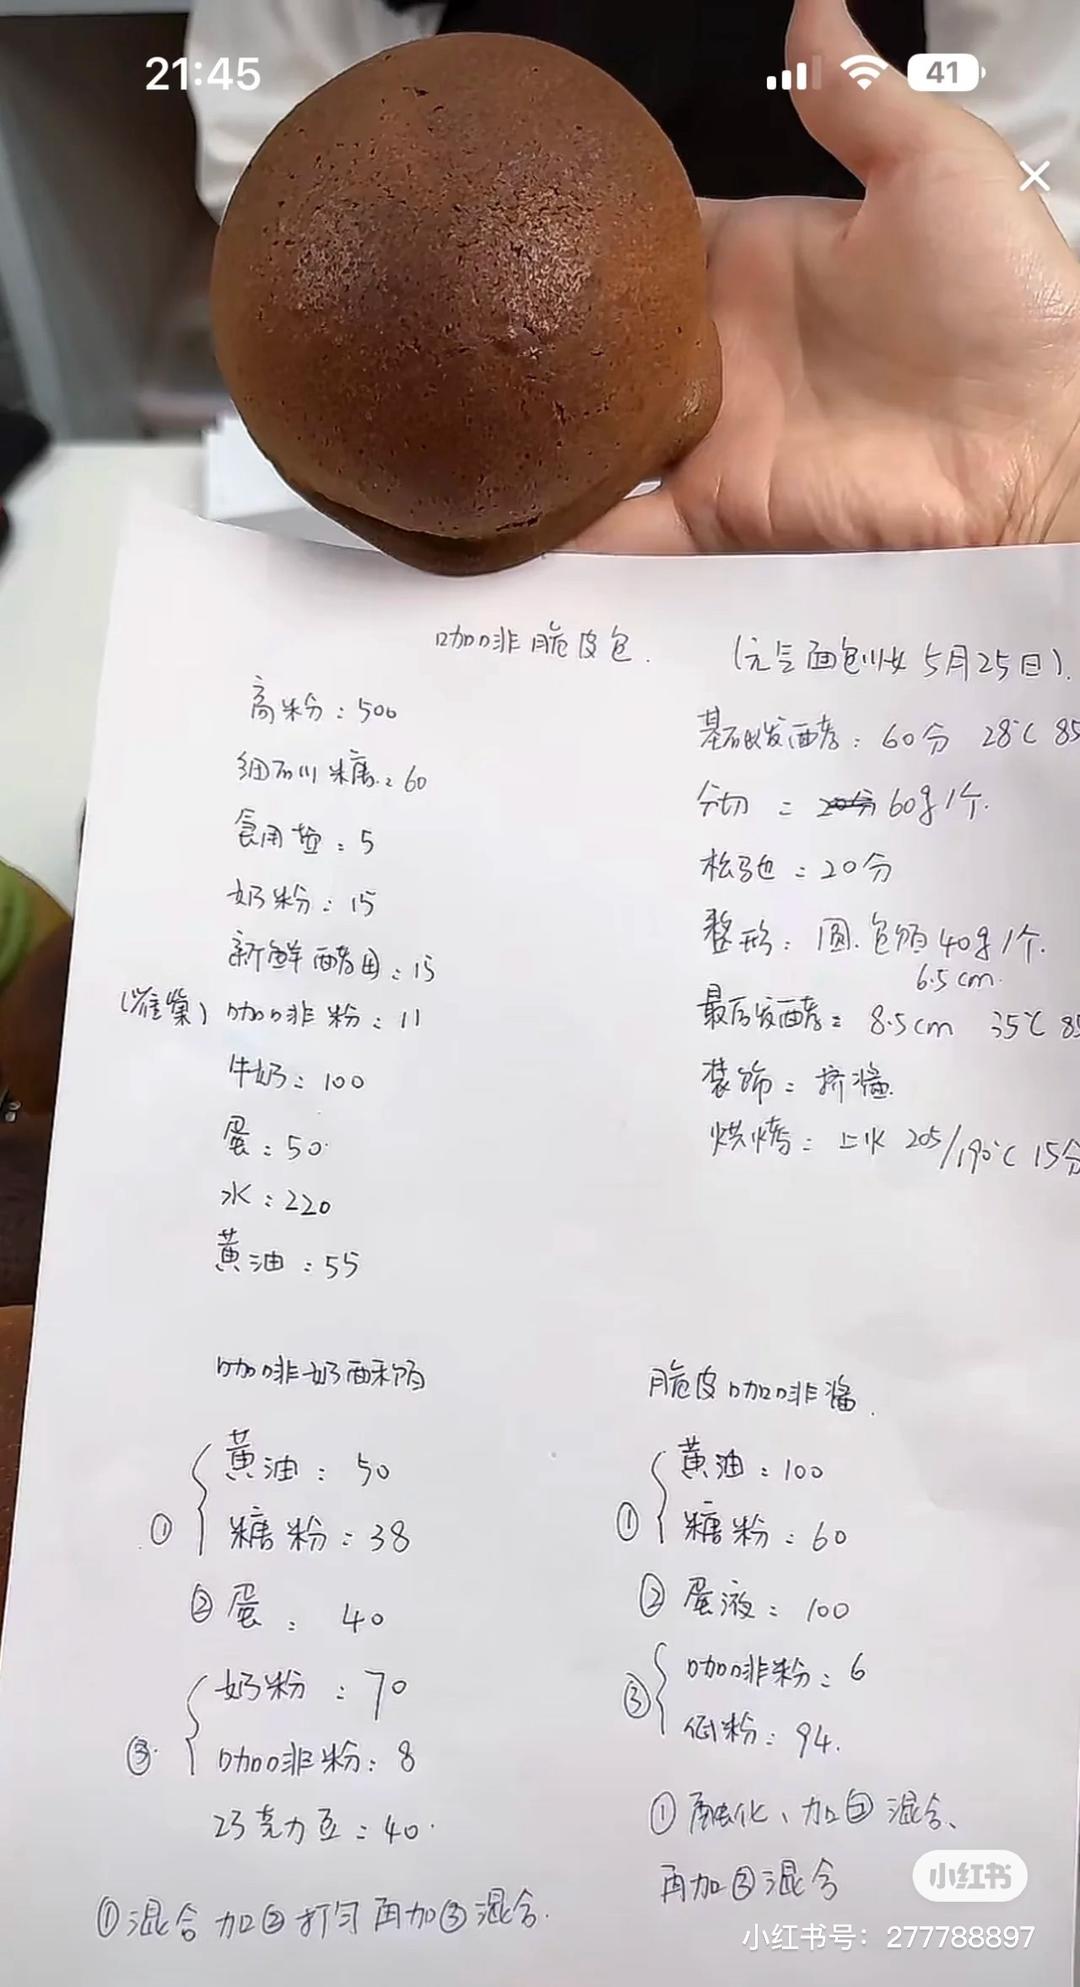 21:45
41
咖啡脆皮包.
(元气面包小妹 5月25日).
高粉：500
细砂糖：60
食用盐：5
奶粉：15
新鲜酵母：15
(雀巢) 咖啡粉：11
牛奶：100
蛋：50
水：220
黄油：55
基础发酵：60分 28℃ 85
分切：60g1个.
松弛：20分
整形：圆.包馅40g1个.
6.5cm.
最后发酵：8.5cm 35℃ 85
装饰：挤酱.
烘烤：上火 205/190℃ 15分
咖啡奶酥馅
①
黄油：50
糖粉：38
②蛋：40
③
奶粉：70
咖啡粉：8
巧克力豆：40.
①混合 加②打匀 再加③混合.
脆皮咖啡酱.
①
黄油：100
糖粉：60
②蛋液：100
③
咖啡粉：6
低粉：94.
①融化、加②混合、
再加③混合
小红书
小红书号：277788897